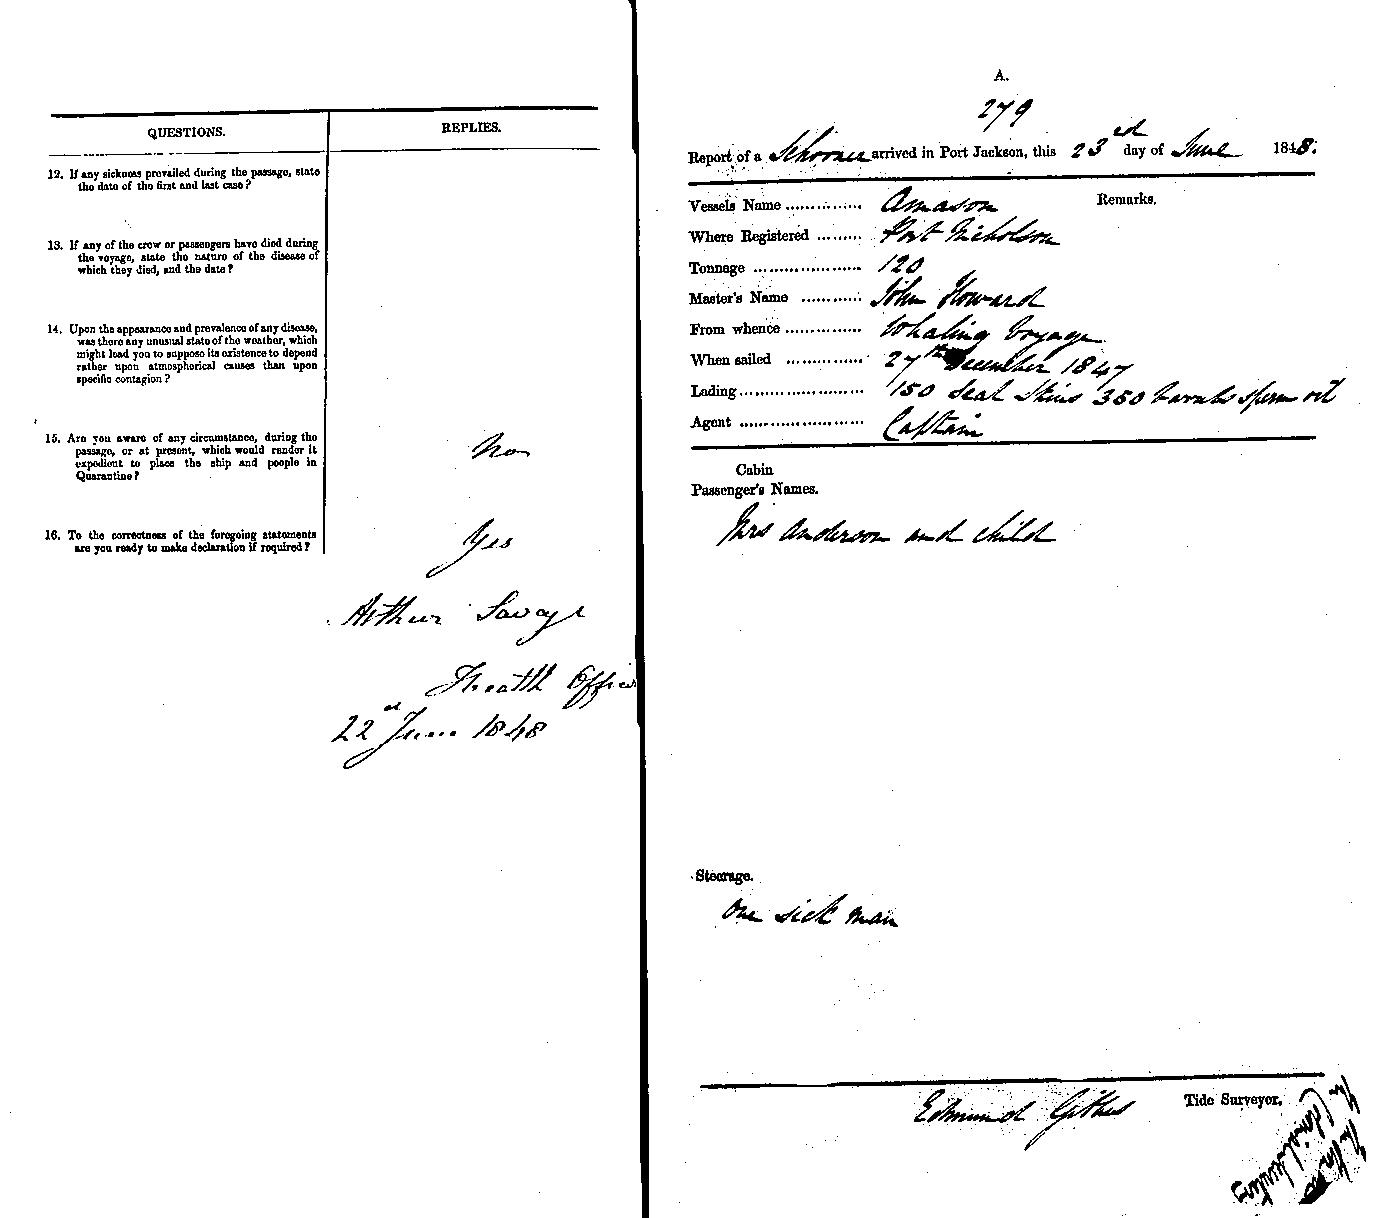 QUESTIONS.
REPLIES.
12. If any sickness prevailed during the passage, state
the date of the first and last case?
13. If any of the crew or passengers have died during
the voyage, state the nature of the disease of
which they died, and the date?
14. Upon the appearance and prevalence of any disease,
was there any unusual state of the weather, which
might lead you to suppose its existence to depend
rather upon atmospherical causes than upon
specific contagion?
15. Are you aware of any circumstance, during the
passage, or at present, which would render it
expedient to place the ship and people in
Quarantine?
No
16. To the correctness of the foregoing statements
are you ready to make declaration if required?
Yes
Arthur Savage
Health Officer
22nd June 1848
A.
279
Report of a Schooner arrived in Port Jackson, this 23rd day of June 1848.
Remarks.
Vessels Name .............. Amason
Where Registered ......... Port Nicholson
Tonnage ..................... 120
Master's Name ............ John Howard
From whence ............... Whaling Voyage
When sailed ............... 27th December 1847
Lading ........................ 150 Seal Skins 350 barrels sperm oil
Agent ........................ Captain
Cabin
Passenger's Names.
Mrs Anderson and child
Steerage.
One sick man
Edmund Gibbes Tide Surveyor.
The